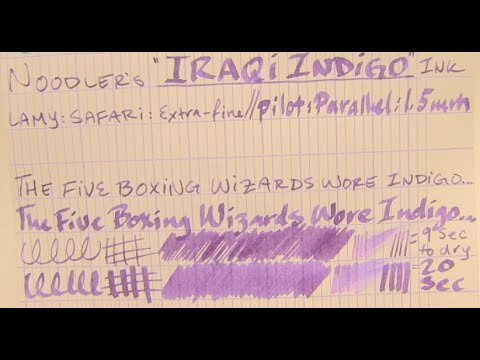 NOODLER'S "IRAQI INDIGO" INK
LAMY: SAFARI: Extra-fine//pilot: Parallel: 1.5mm
THE FIVE BOXING WIZARDS WORE INDIGO...
The Five Boxing Wizards Wore Indigo...
= 9 sec to dry
= 20 sec